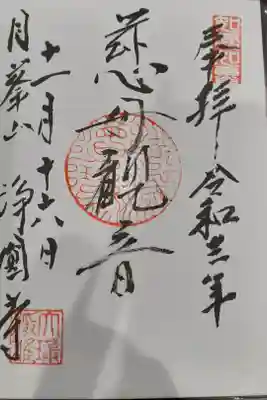 奉拝 令和三年
慈母観音
十一月十六日
月峯山 浄圓寺